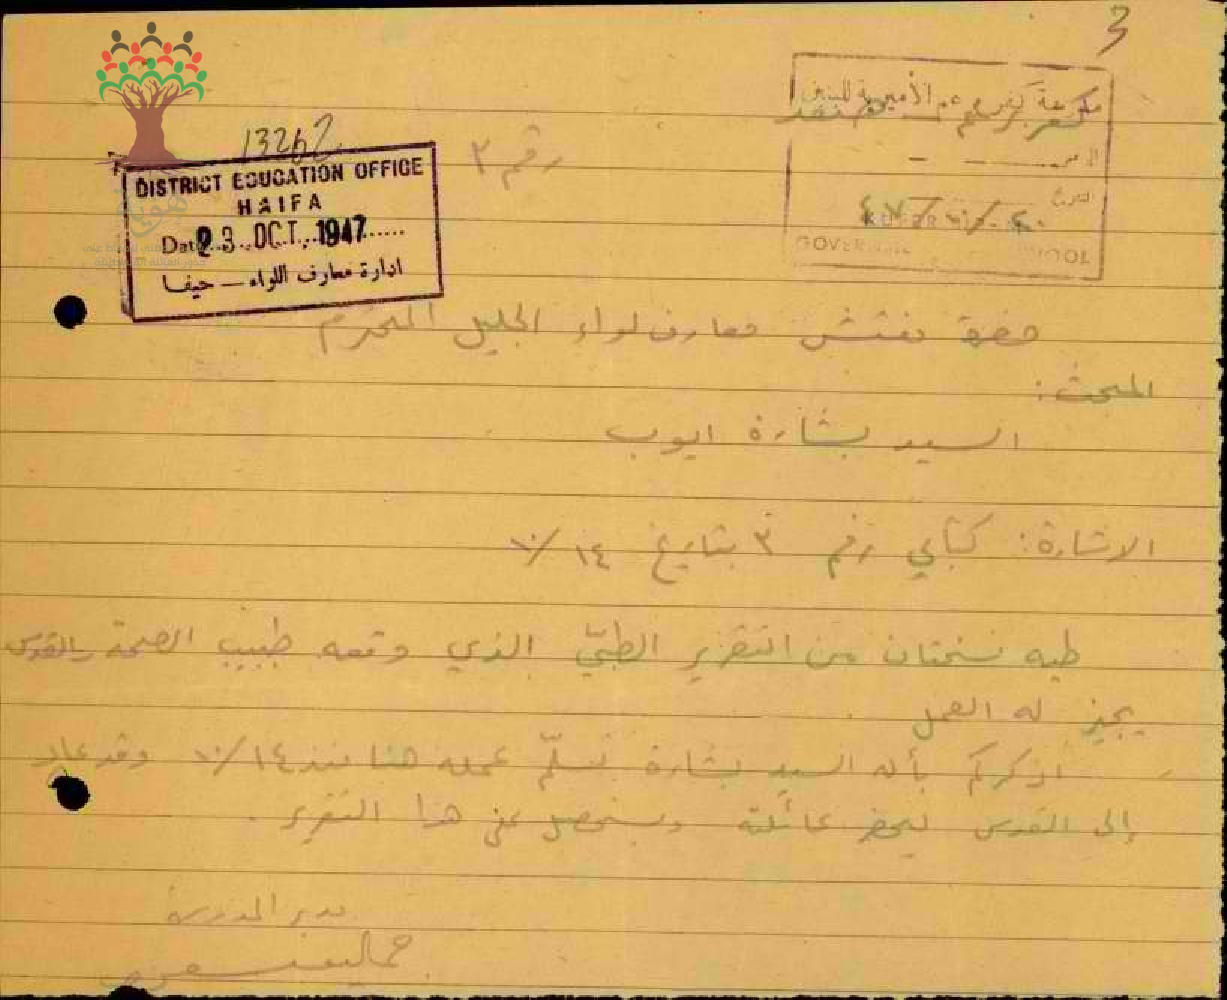 3
مدرسة كفر برعم الأميرية للبنين
صفد
التاريخ ٢٠/١٠/٤٧
GOVERNMENT SCHOOL
13262
DISTRICT EDUCATION OFFICE
HAIFA
Date 23 OCT. 1947
ادارة معارف اللواء — حيفا
رقم ٢
حضرة مفتش معارف لواء الجليل المحترم
المبحث:
السيد بشارة ايوب
الاشارة: كتابي رقم ٣ بتاريخ ١٤/١٠
طيه نسختان من التقرير الطبّي الذي وقعه طبيب الصحة بالقدس
يجيز له العمل.
اذكركم بأن السيد بشارة تسلّم عمله هنا منذ ١٤/١٠ وقد عاد
إلى القدس ليحضر عائلته وليحصل على هذا التقرير.
مدير المدرسة